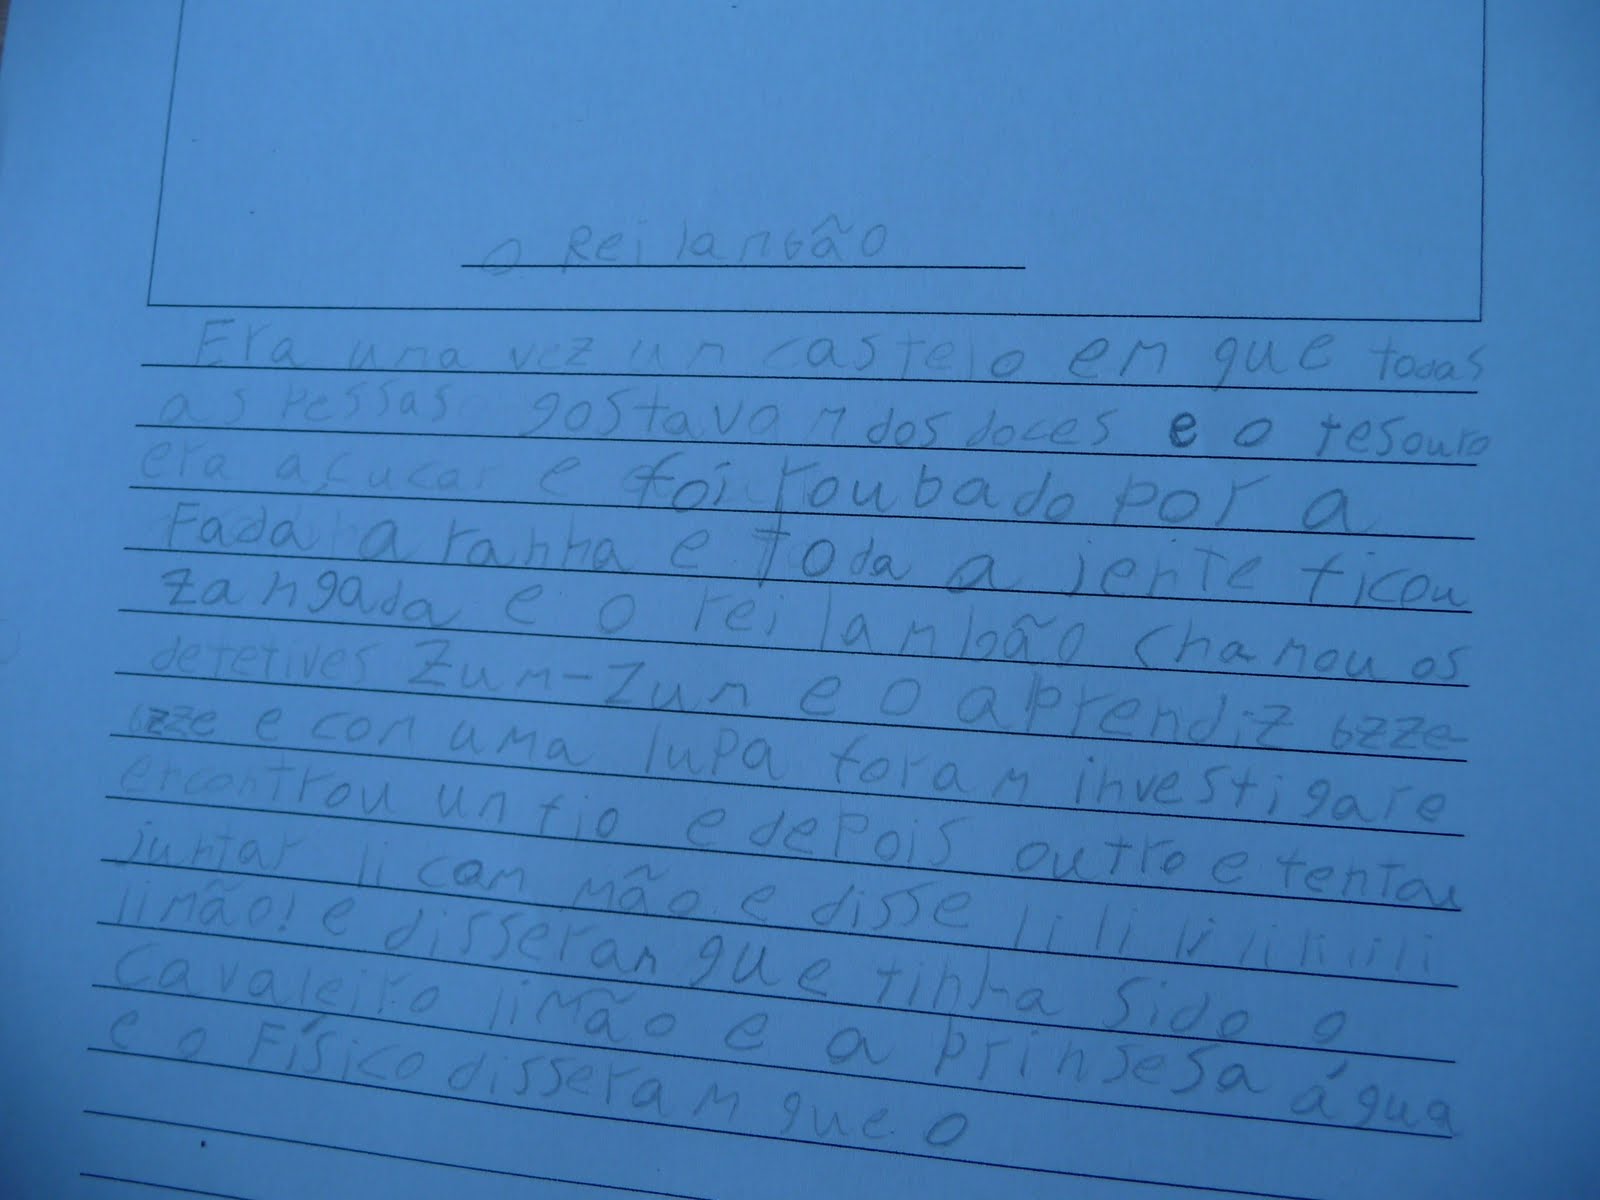 O Rei lambão
Era uma vez um castelo em que todas
as pessas gostavam dos doces e o tesouro
era açucar e foi roubado por a
Fada a ranha e toda a jente ficou
zangada e o rei lambão chamou os
detetives Zum-Zum e o aprendiz bzze
bzze e com uma lupa foram investigar e
encontrou um fio e depois outro e tentou
juntar li com mão e disse li li li li li li li
limão! e disseram que tinha sido o
cavaleiro limão e a prinsesa água
e o Físico disseram que o